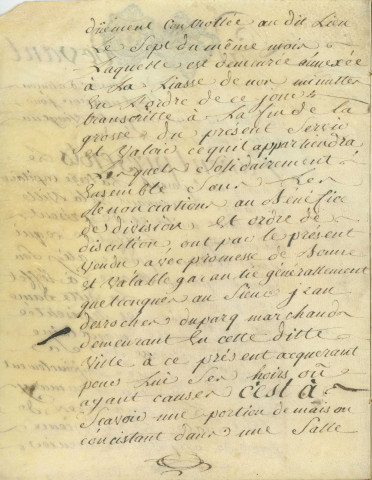 düement Controllée au dit Lieu
Le Sept du même mois
Laquelle est demeurée annexée
à La Liasse de nos minuttes
En L'ordre de ce jour
transcritte à La fin de la
grosse du present Servir
et Valoir ce qu'il appartiendra
Lesquels Solidairement
Ensemble Sous Les
Renonciations au Bénéfice
de division, et ordre de
discution, ont par le présent
Vendu avec promesse de bonne
et Valable garantie généralement
quelconques au Sieur jean
desrocher duparq marchand
demeurant En cette ditte
Ville à ce présent acquereur
pour Lui Ses hoirs ou
ayant causes c'est à
Scavoir une portion de maison
concistant dans une Salle